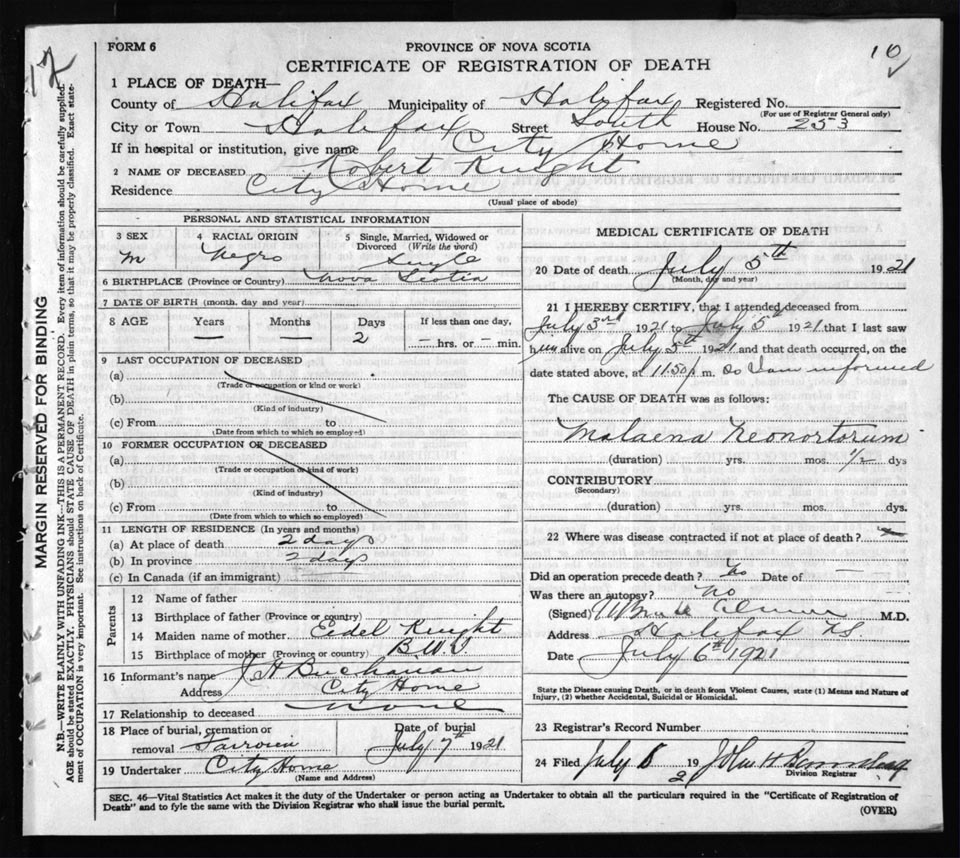 12
10
FORM 6
PROVINCE OF NOVA SCOTIA
CERTIFICATE OF REGISTRATION OF DEATH
1 PLACE OF DEATH—
County of Halifax Municipality of Halifax Registered No.
(For use of Registrar General only)
City or Town Halifax Street South House No. 253
If in hospital or institution, give name City Home
2 NAME OF DECEASED Robert Knight
Residence City Home
(Usual place of abode)
PERSONAL AND STATISTICAL INFORMATION
3 SEX 4 RACIAL ORIGIN 5 Single, Married, Widowed or Divorced (Write the word)
M Negro Single
6 BIRTHPLACE (Province or Country) Nova Scotia
7 DATE OF BIRTH (month, day and year)
8 AGE Years Months Days If less than one day,
— — 2 — hrs. or — min.
9 LAST OCCUPATION OF DECEASED
(a)
(Trade or occupation or kind or work)
(b)
(Kind of industry)
(c) From to
(Date from which to which so employed)
10 FORMER OCCUPATION OF DECEASED
(a)
(Trade or occupation or kind of work)
(b)
(Kind of industry)
(c) From to
(Date from which to which so employed)
11 LENGTH OF RESIDENCE (In years and months)
(a) At place of death 2 days
(b) In province 2 days
(c) In Canada (if an immigrant)
Parents
12 Name of father
13 Birthplace of father (Province or country)
14 Maiden name of mother Eedel Knight
15 Birthplace of mother (Province or country) B.W.I
16 Informant's name J H Buchanan
Address City Home
17 Relationship to deceased none
18 Place of burial, cremation or removal Fairview Date of burial July 7th 1921
19 Undertaker City Home
(Name and Address)
MEDICAL CERTIFICATE OF DEATH
20 Date of death July 5th 1921
(Month, day and year)
21 I HEREBY CERTIFY, that I attended deceased from
July 3rd 1921 to July 5 1921 that I last saw
him alive on July 5th 1921 and that death occurred, on the
date stated above, at 11.50 p m. so I am informed
The CAUSE OF DEATH was as follows:
Malaena Neonortorum
(duration) yrs. mos. 1/2 dys
CONTRIBUTORY
(Secondary)
(duration) yrs. mos. dys.
22 Where was disease contracted if not at place of death?
Did an operation precede death? No Date of — —
Was there an autopsy? No
(Signed) M.D.
Address Halifax NS.
Date July 6th 1921
State the Disease causing Death, or in death from Violent Causes, state (1) Means and Nature of Injury, (2) whether Accidental, Suicidal or Homicidal.
23 Registrar's Record Number
24 Filed July 8 192 John H
Division Registrar
SEC. 46—Vital Statistics Act makes it the duty of the Undertaker or person acting as Undertaker to obtain all the particulars required in the "Certificate of Registration of
Death" and to fyle the same with the Division Registrar who shall issue the burial permit.
(OVER)
MARGIN RESERVED FOR BINDING
N.B.—WRITE PLAINLY WITH UNFADING INK—THIS IS A PERMANENT RECORD. Every item of information should be carefully supplied.
AGE should be stated EXACTLY. PHYSICIANS should STATE CAUSE OF DEATH in plain terms, so that it may be properly classified. Exact state-
ment of OCCUPATION is very important. See instructions on back of Certificate.